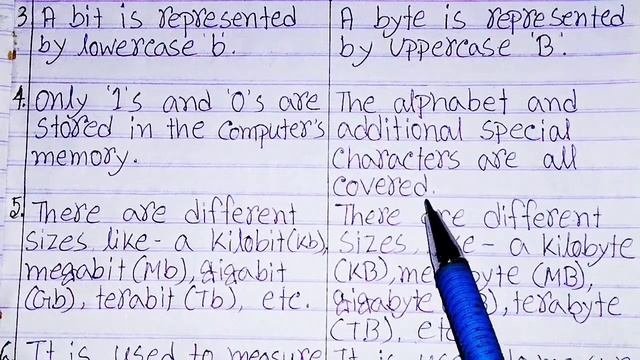 3. A bit is represented
by lowercase 'b'.
A byte is represented
by uppercase 'B'.
4. Only '1's and '0's are
stored in the computer's
memory.
The alphabet and
additional special
characters are all
covered.
5. There are different
sizes like - a kilobit(kb),
megabit (Mb), gigabit
(Gb), terabit (Tb), etc.
There are different
sizes - a kilobyte
(KB), (MB),
gigabyte terabyte
(TB), etc
It is used to measure
It is